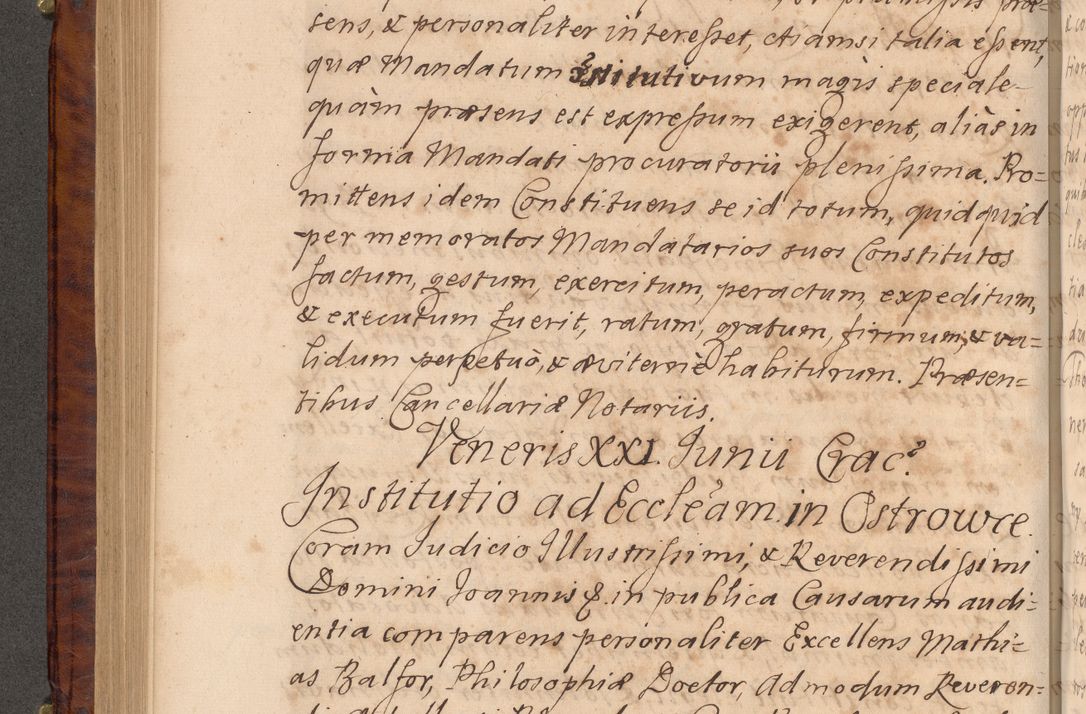 sens, & personaliter interesset, etiamsi talia essent,
quæ Mandatum magis speciale
quàm præsens est expressum exigerent, aliàs in
forma Mandati procuratorii plenissima. Pro=
mittens idem Constituens se id totum, quidquid
per memoratos Mandatarios suos Constitutos
factum, gestum, exercitum, peractum, expeditum,
& executum fuerit, ratum, gratum, firmum, & va=
lidum perpetuò, & æviternè habiturum. Præsen=
tibus Cancellariæ Notariis.
Veneris XXI. Junii Crac.
Institutio ad Eccleam. in Ostrowce.
Coram Judicio Illustrissimi, & Reverendissimi
Domini Joannis &. in publica Causarum audi=
entia comparens personaliter Excellens Mathi=
as Balfor, Philosophiæ Doctor, Admodum Reveren=